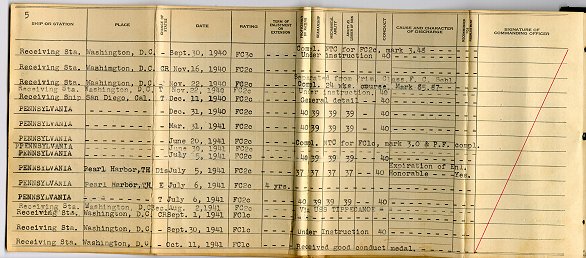 5
SHIP OR STATION PLACE DATE RATING TERM OF ENLISTMENT OR EXTENSION CONDUCT CAUSE AND CHARACTER OF DISCHARGE SIGNATURE OF COMMANDING OFFICER
Receiving Sta. Washington, D.C. - Sept.30, 1940 FC3c Compl. NTC for FC2c, mark 3.48 Under instruction 40
Receiving Sta. Washington, D.C. CR Nov.16, 1940 FC2c
Receiving Sta. Washington, D.C. - Nov. 22, 1940 FC2c Compl. 24 wks. course. Mark 85.87
Receiving Sta. Washington, D.C. T Nov.22, 1940 FC2c Under instruction. 40
Receiving Ship San Diego, Cal. T Dec.11, 1940 FC2c General detail 40
PENNSYLVANIA Dec. 31, 1940 FC2c 40 39 39 39 40
PENNSYLVANIA Mar. 31, 1941 FC2c 40 39 39 39 40
PENNSYLVANIA June 20, 1941 FC2c Compl. NTC for FC1c, mark 3.0 & P.F. compl.
PENNSYLVANIA June 30, 1941 FC2c 40 39 39 39 40
PENNSYLVANIA July 5, 1941 FC2c
PENNSYLVANIA Pearl Harbor, TH Dis July 5, 1941 FC2c 37 37 37 37 40 Expiration of Enl. Honorable - Yes.
PENNSYLVANIA Pearl Harbor, TH, E July 6, 1941 FC2c 4 yrs.
PENNSYLVANIA T July 6, 1941 FC2c 40 39 39 39 40
Receiving Sta. Washington, D.C. Rec Aug. 2, 1941 FC2c Via USS TIPPECANOE
Receiving Sta. Washington, D.C. CR Sept.1, 1941 FC1c
Receiving Sta. Washington, D.C. - Sept.30, 1941 FC1c Under Instruction 40
Receiving Sta. Washington, D.C. - Oct.11, 1941 FC1c Received good conduct medal.